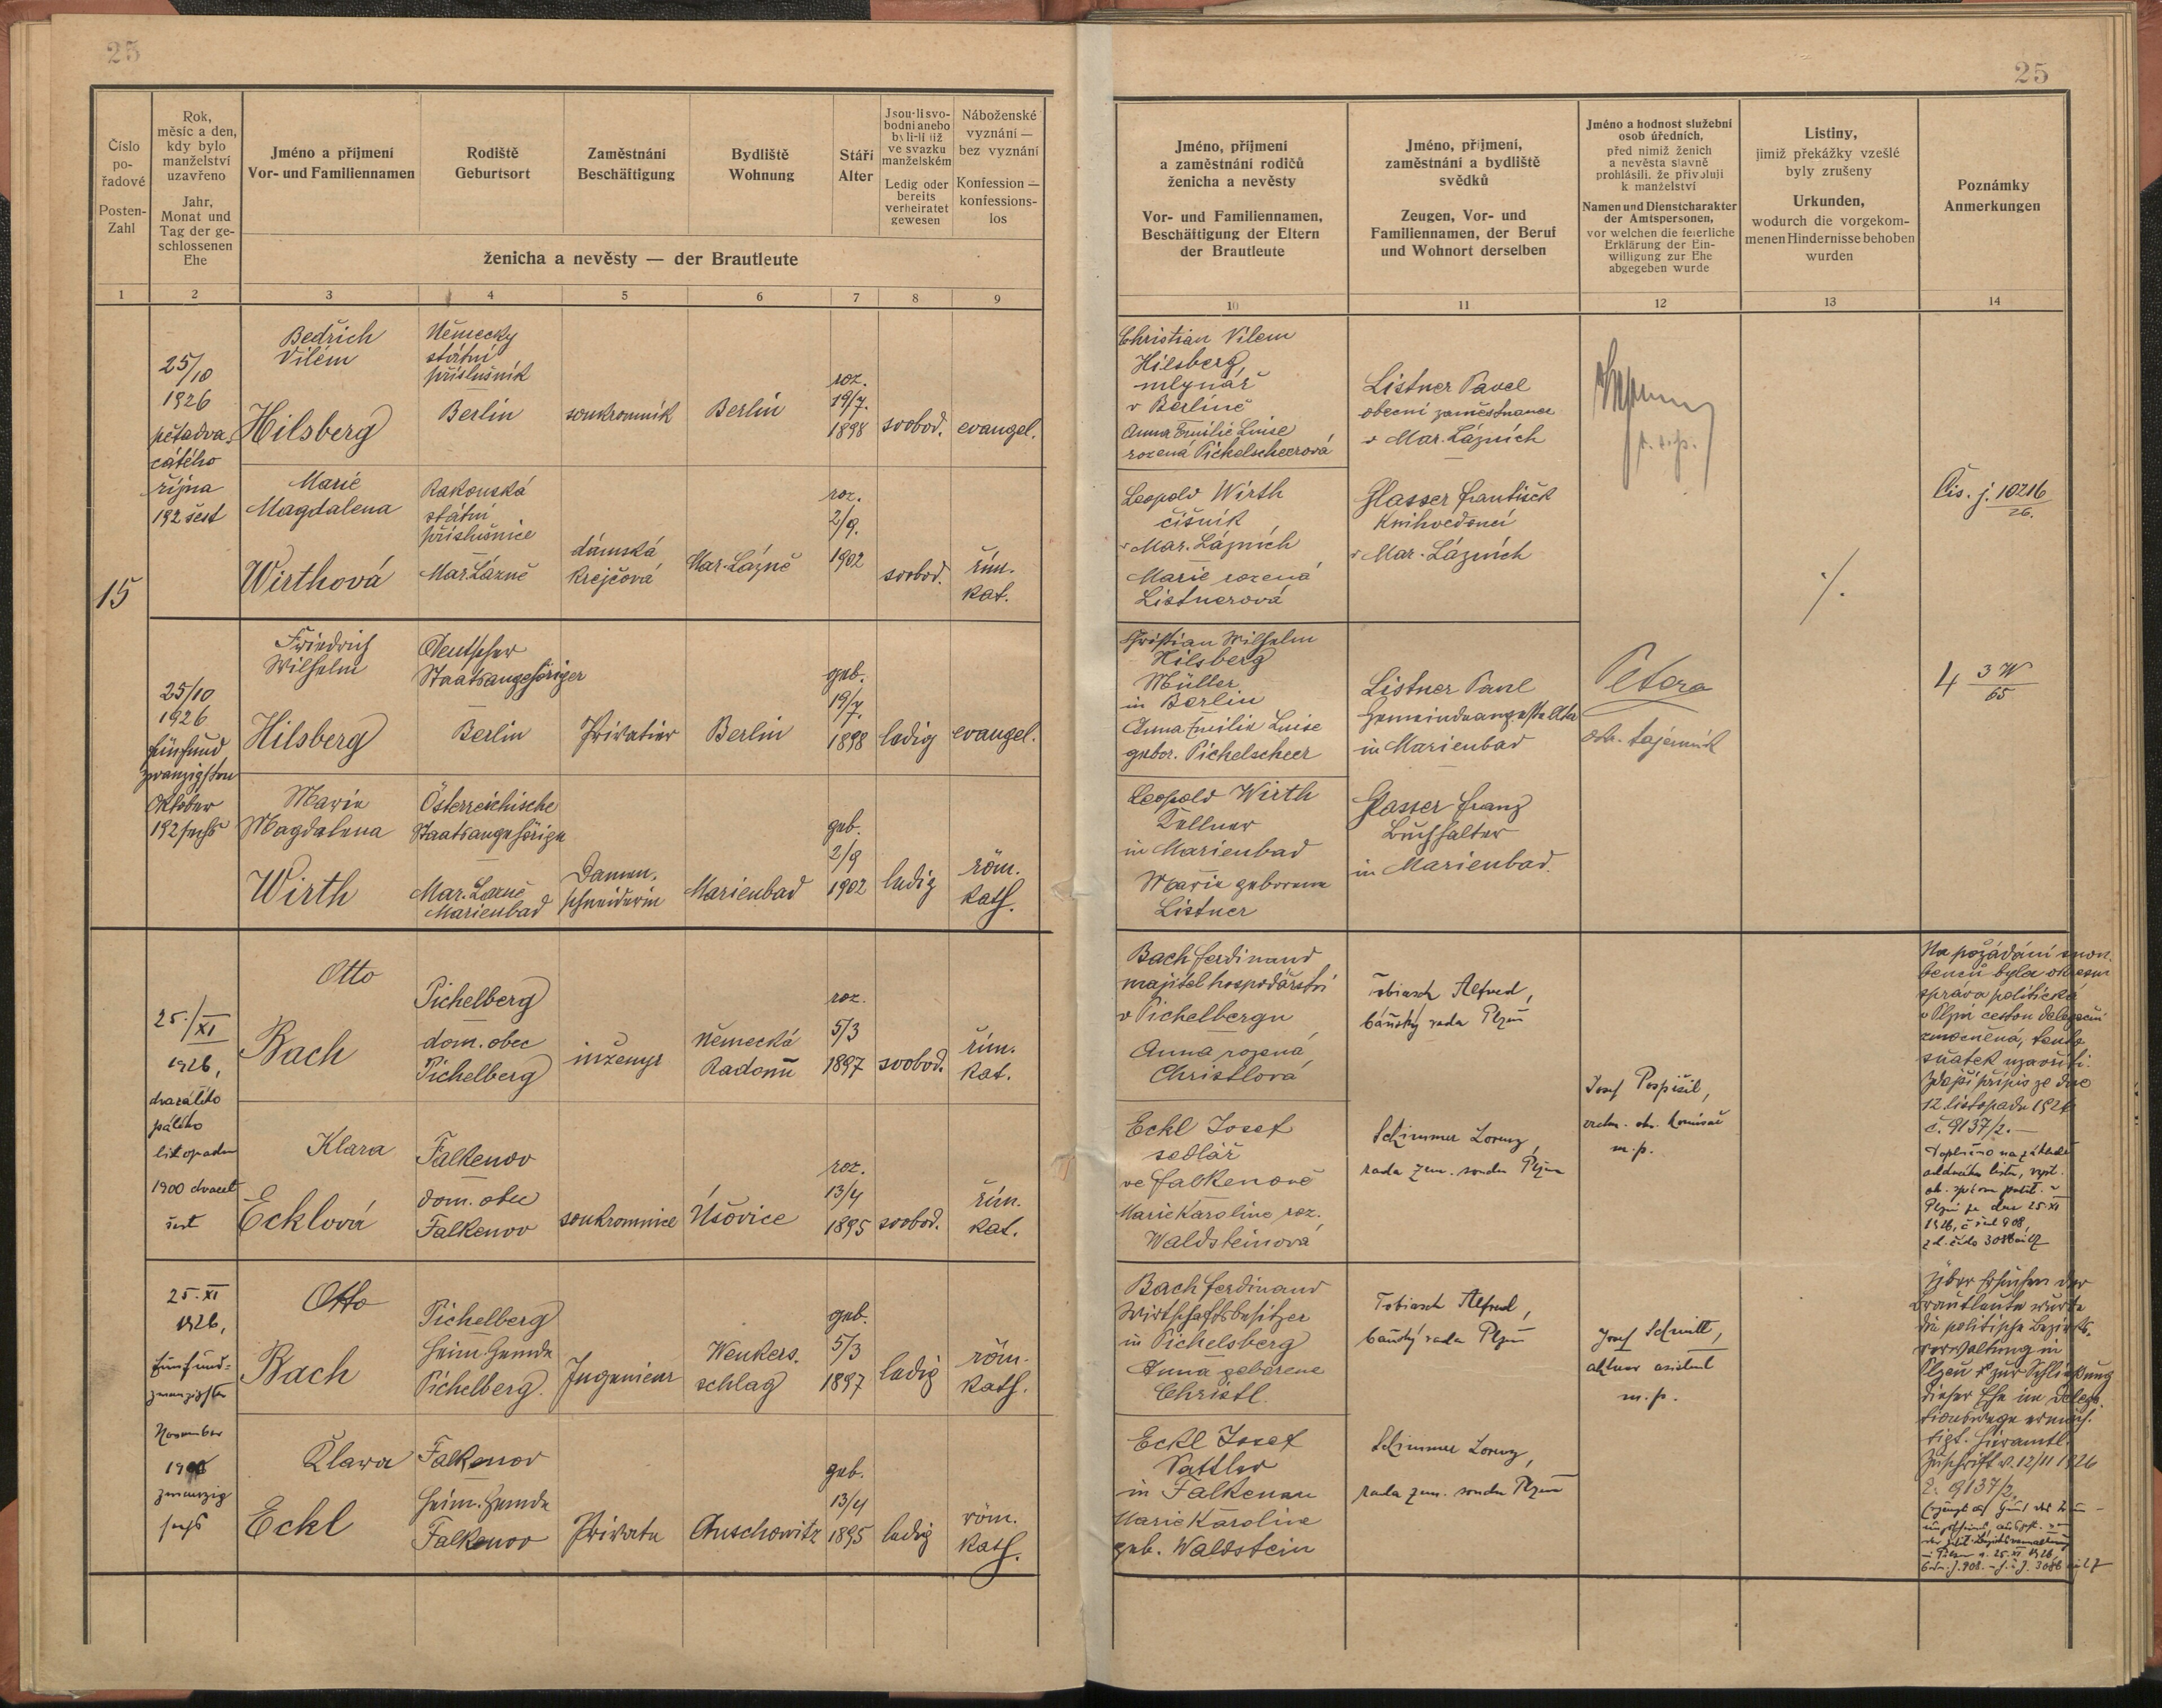 25
25
Číslo
po-
řadové
Posten-
Zahl
Rok,
měsíc a den,
kdy bylo
manželství
uzavřeno
Jahr,
Monat und
Tag der ge-
schlossenen
Ehe
Jméno a příjmení
Vor- und Familiennamen
Rodiště
Geburtsort
Zaměstnání
Beschäftigung
Bydliště
Wohnung
Stáří
Alter
Jsou-li svo-
bodni anebo
byli-li již
ve svazku
manželském
Ledig oder
bereits
verheiratet
gewesen
Náboženské
vyznání —
bez vyznání
Konfession —
konfessions-
los
ženicha a nevěsty — der Brautleute
Jméno, příjmení
a zaměstnání rodičů
ženicha a nevěsty
Vor- und Familiennamen,
Beschäftigung der Eltern
der Brautleute
Jméno, příjmení,
zaměstnání a bydliště
svědků
Zeugen, Vor- und
Familiennamen, der Beruf
und Wohnort derselben
Jméno a hodnost služební
osob úředních,
před nimiž ženich
a nevěsta slavně
prohlásili, že přivolují
k manželství
Namen und Dienstcharakter
der Amtspersonen,
vor welchen die feierliche
Erklärung der Ein-
willigung zur Ehe
abgegeben wurde
Listiny,
jimiž překážky vzešlé
byly zrušeny
Urkunden,
wodurch die vorgekom-
menen Hindernisse behoben
wurden
Poznámky
Anmerkungen
1 2 3 4 5 6 7 8 9 10 11 12 13 14
15
25/10
1926
pětadva-
cátého
října
192 šest
Bedřich
Vilém
Hilsberg
Německy
státní
příslušník
Berlin
soukromník
Berlin
roz.
19/7.
1898
svobod.
evangel.
Christian Vilem
Hilsberg,
mlynář
v Berlíně
Anna Emilie Luise
rozená Pichelscheerová
Listner Pavel
obecní zaměstnanec
v Mar. Lázních
Marie
Magdalena
Wirthová
Rakouská
státní
příslušnice
Mar. Lázně
dámská
krejčová
Mar. Lázně
roz.
2/9.
1902
svobod.
řím.
kat.
Leopold Wirth
číšník
v Mar. Lázních
Marie rozená
Listnerová
Glasser František
Knihvedoucí
v Mar. Lázních
Čis. j. 10216/26.
./.
25/10
1926
fünfund
zwanzigsten
Oktober
192 sechs
Friedrich
Wilhelm
Hilsberg
Deutscher
Staatsangehöriger
Berlin
Privatier
Berlin
geb.
19/7.
1898
ledig
evangel.
Christian Wilhelm
Hilsberg
Müller
in Berlin
Anna Emilie Luise
gebor. Pichelscheer
Listner Paul
Gemeindeangestellter
in Marienbad
Petera
obr. tajemník
4 3W/65
Marie
Magdalena
Wirth
Österreichische
Staatsangehörige
Mar. Lázně
Marienbad
Damen-
schneiderin
Marienbad
geb.
2/9
1902
ledig
röm.
kath.
Leopold Wirth
Kellner
in Marienbad
Marie geborene
Listner
Glasser Franz
Buchhalter
in Marienbad.
25./XI
1926,
dvacátého
pátého
listopadu
1900 dvacet
šest
Otto
Bach
Pichelberg
dom. obec
Pichelberg
inženyr
německá
Radouň
roz.
5/3
1897
svobod.
řím.
kat.
Bach Ferdinand
majitel hospodářství
v Pichelbergu
Anna rozená
Christlová
Tobiasch Alfred,
báňský rada Plzeň
Josef Pospíšil,
m. p.
Na požádání snou-
benců byla okresní
správa politická
v Plzni cestou delegační
zmocněná, tento
sňatek uzavříti.
Zdejší přípis ze dne
12. listopadu 1926
č. 9137/2.—
Doplněno na základě
oddacího listu, vyst.
ok. správou polit. v
Plzni ze dne 25. XI
1926,
Klara
Ecklová
Falkenov
dom. obec
Falkenov
soukromnice
Úšovice
roz.
13/4
1895
svobod.
řím.
kat.
Eckl Josef
sedlář
ve Falkenově
Marie Karoline roz.
Waldsteinová
Schimmer Lorenz,
rada zem. soudu Plzeň
25. XI
1926,
fünfund-
zwanzigsten
November
1900
zwanzig
sechs
Otto
Bach
Pichelberg
Heim. Gemde
Pichelberg.
Ingenieur
Wenkers-
schlag
geb.
5/3
1897
ledig
röm.
kath.
Bach Ferdinand
Wirtschaftsbesitzer
in Pichelsberg
Anna geborene
Christl.
Tobiasch Alfred,
báňský rada Plzeň
Josef Schmitt,
m. p.
Über Ersuchen der
Brautleute wurde
die politische Bezirks-
verwaltung in
Plzeň zur Schließung
dieser Ehe im Delega-
tionswege ermäch-
tigt. Hieramtl.
Zuschrift v. 12/11 1926
Z. 9137/2.
Klara
Eckl
Falkenov
Heim. Gemde
Falkenov
Private
Auschowitz
geb.
13/4
1895
ledig
röm.
kath.
Eckl Josef
Sattler
in Falkenau
Marie Karoline
geb. Waldstein
Schimmer Lorenz,
rada zem. soudu Plzeň